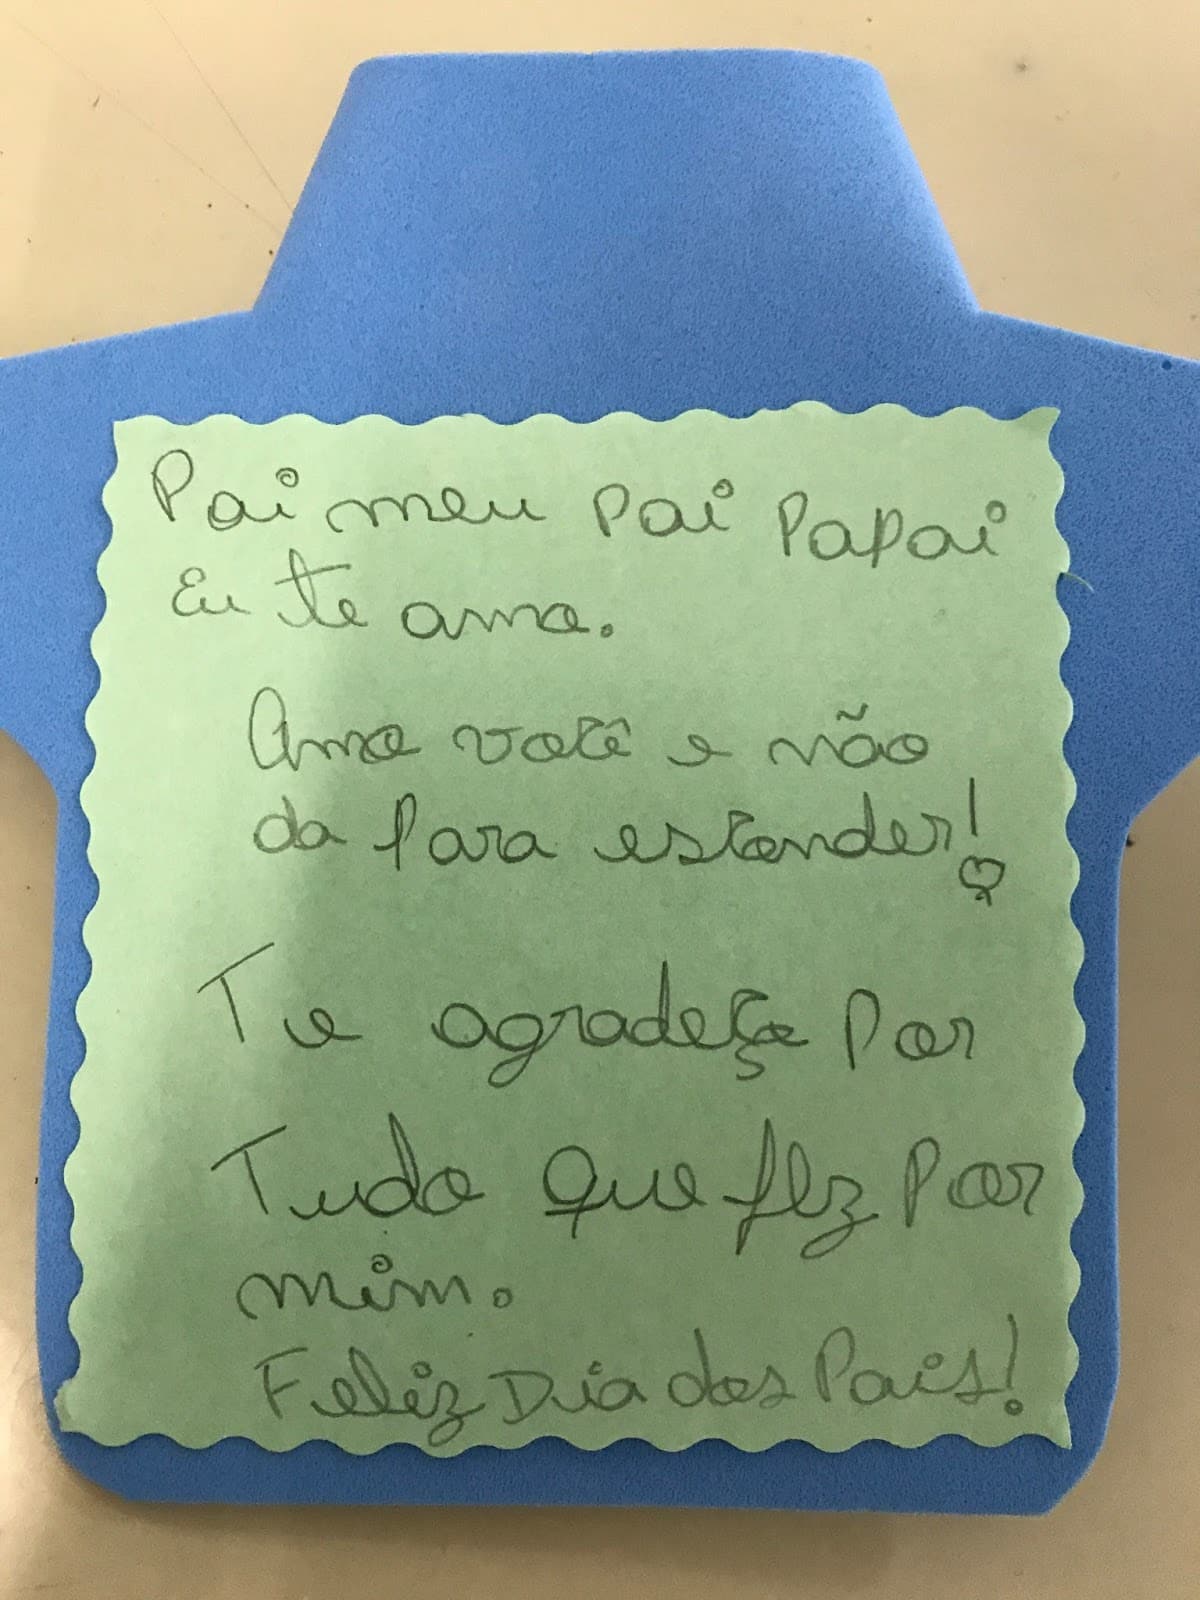 Pai meu pai Papai
Eu te amo.
Amo você e não
da para estender!
Te agradeço por
Tudo que fez por
mim.
Feliz Dia dos Pais!